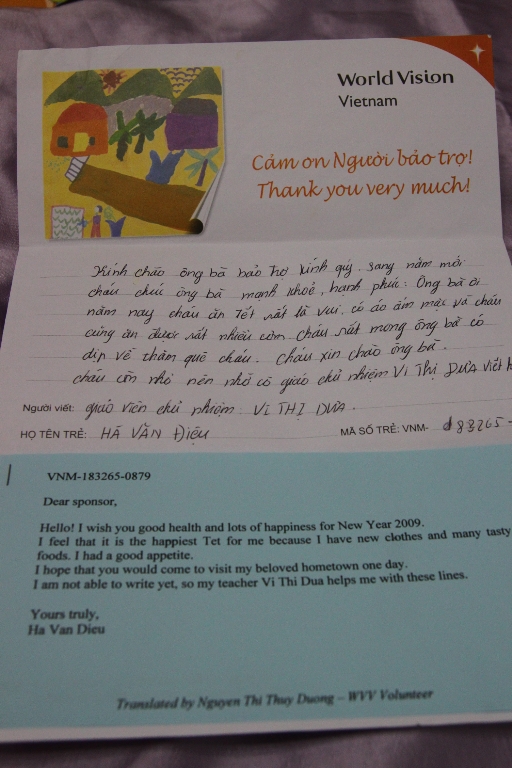 World Vision
Vietnam
Cảm ơn Người bảo trợ!
Thank you very much!
Kính chào ông bà bảo trợ kính quý. Sang năm mới
cháu chúc ông bà mạnh khoẻ, hạnh phúc. Ông bà ơi
năm nay cháu ăn Tết rất là vui. có áo ấm mặc và cháu
cũng ăn được rất nhiều cơm cháu rất mong ông bà có
dịp về thăm quê cháu. Cháu xin chào ông bà.
cháu còn nhỏ nên nhờ cô giáo chủ nhiệm Vi THỊ DƯA viết
Người viết: giáo viên chủ nhiệm: VI THỊ DƯA.
HỌ TÊN TRẺ: HÀ VĂN Điệu
MÃ SỐ TRẺ: VNM- 183265-
VNM-183265-0879
Dear sponsor,
Hello! I wish you good health and lots of happiness for New Year 2009.
I feel that it is the happiest Tet for me because I have new clothes and many tasty
foods. I had a good appetite.
I hope that you would come to visit my beloved hometown one day.
I am not able to write yet, so my teacher Vi Thi Dua helps me with these lines.
Yours truly,
Ha Van Dieu
Translated by Nguyen Thi Thuy Duong – WVV Volunteer